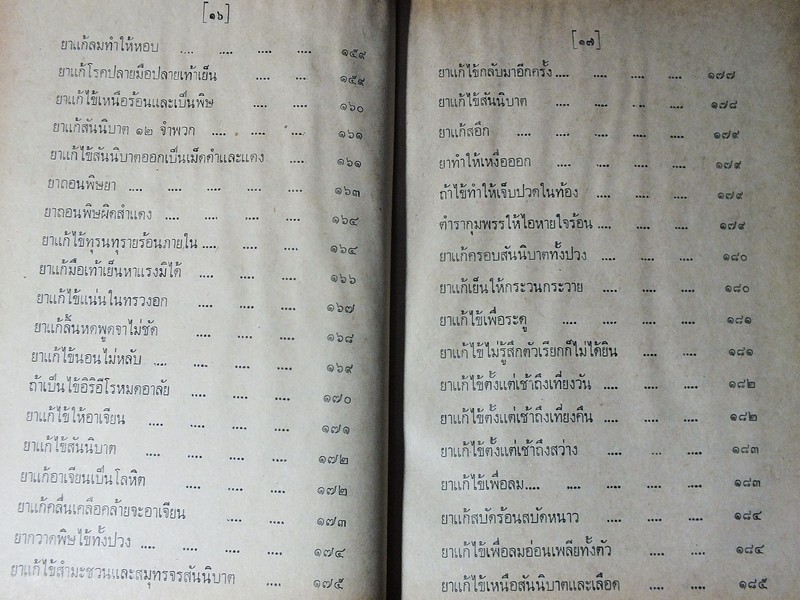 [๑๖]
ยาแก้ลมทำให้หอบ .... .... .... .... ๑๕๙
ยาแก้โรคปลายมือปลายเท้าเย็น .... .... ๑๕๙
ยาแก้ไข้เหนือร้อนและเป็นพิษ .... .... ๑๖๐
ยาแก้สันนิบาต ๑๒ จำพวก .... .... .... ๑๖๑
ยาแก้ไข้สันนิบาตออกเป็นเม็ดดำและแดง .... ๑๖๑
ยาถอนพิษยา .... .... .... .... .... ๑๖๓
ยาถอนพิษผิดสำแดง .... .... .... .... ๑๖๔
ยาแก้ไข้ทุรนทุรายร้อนภายใน .... .... .... ๑๖๔
ยาแก้มือเท้าเย็นหาแรงมิได้ .... .... .... ๑๖๖
ยาแก้ไข้แน่นในทรวงอก .... .... .... ๑๖๗
ยาแก้ลิ้นหดพูดจาไม่ชัด .... .... .... ๑๖๘
ยาแก้ไข้นอนไม่หลับ .... .... .... .... ๑๖๙
ถ้าเป็นไข้อิริอีโรหมดอาลัย .... .... .... ๑๗๐
ยาแก้ไข้ให้อาเจียน .... .... .... .... ๑๗๑
ยาแก้ไข้สันนิบาต .... .... .... .... ๑๗๒
ยาแก้อาเจียนเป็นโลหิต .... .... .... ๑๗๒
ยาแก้คลื่นเคลือคล้ายจะอาเจียน .... .... ๑๗๓
ยากวาดพิษไข้ทั้งปวง .... .... .... .... ๑๗๔
ยาแก้ไข้สำมะชวนและสมุทรจรสันนิบาต .... ๑๗๕
[๑๗]
ยาแก้ไข้กลับมาอีกครั้ง .... .... .... .... ๑๗๗
ยาแก้ไข้สันนิบาต .... .... .... .... ๑๗๘
ยาแก้สอึก .... .... .... .... .... ๑๗๙
ยาทำให้เหงื่อออก .... .... .... .... ๑๗๙
ถ้าไข้ทำให้เจ็บปวดในท้อง .... .... .... ๑๗๙
ตำรากุมพรรให้ไอหายใจร้อน .... .... .... ๑๗๙
ยาแก้ครอบสันนิบาตทั้งปวง .... .... .... ๑๘๐
ยาแก้เย็นให้กระวนกระวาย .... .... .... ๑๘๐
ยาแก้ไข้เพื่อระดู .... .... .... .... ๑๘๑
ยาแก้ไข้ไม่รู้สึกตัวเรียกก็ไม่ได้ยิน .... .... ๑๘๑
ยาแก้ไข้ตั้งแต่เช้าถึงเที่ยงวัน .... .... .... ๑๘๒
ยาแก้ไข้ตั้งแต่เช้าถึงเที่ยงคืน .... .... .... ๑๘๒
ยาแก้ไข้ตั้งแต่เช้าถึงสว่าง .... .... .... ๑๘๓
ยาแก้ไข้เพื่อลม .... .... .... .... .... ๑๘๓
ยาแก้สบัดร้อนสบัดหนาว .... .... .... ๑๘๔
ยาแก้ไข้เพื่อลมอ่อนเพลียทั้งตัว .... .... ๑๘๔
ยาแก้ไข้เหนือสันนิบาตและเลือด .... .... ๑๘๕